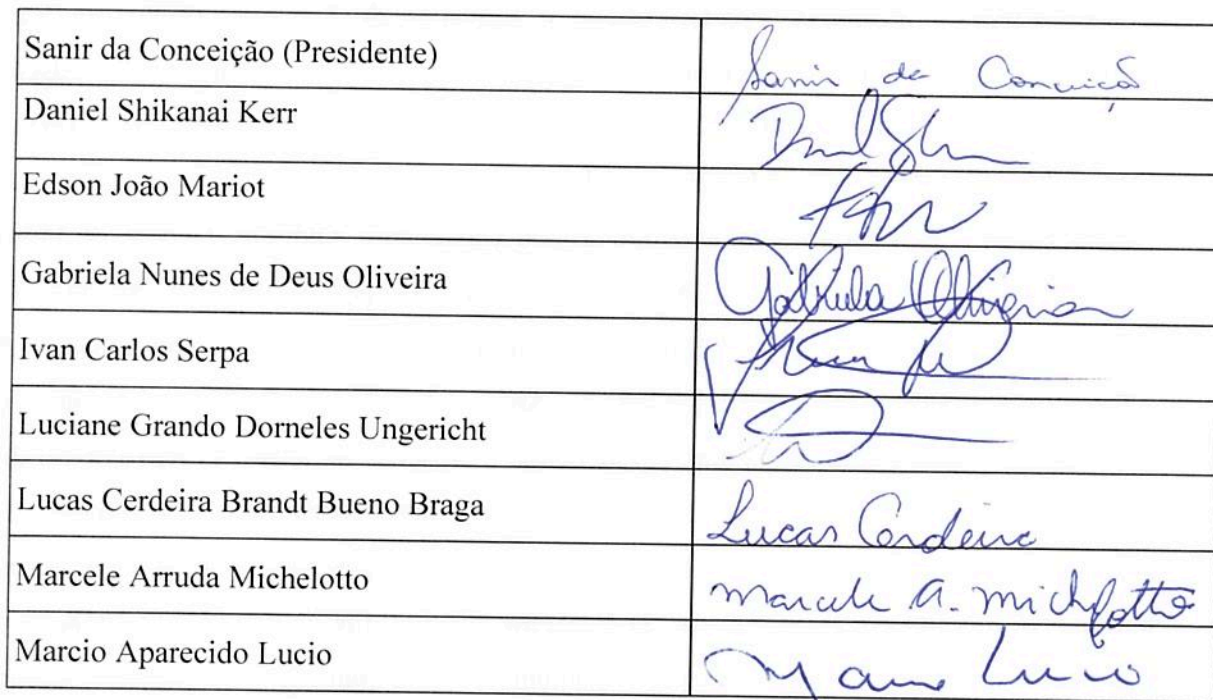 Sanir da Conceição (Presidente) Sanir da Conceição
Daniel Shikanai Kerr
Edson João Mariot
Gabriela Nunes de Deus Oliveira Gabriela Oliveira
Ivan Carlos Serpa
Luciane Grando Dorneles Ungericht
Lucas Cerdeira Brandt Bueno Braga Lucas Cerdeira
Marcele Arruda Michelotto Marcele A. Michelotto
Marcio Aparecido Lucio Lucio